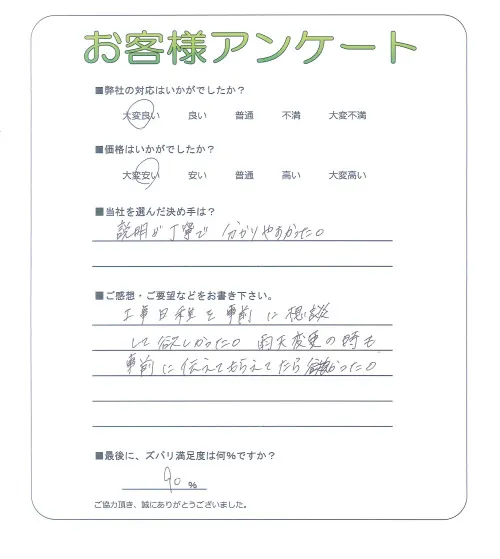 お客様アンケート
■弊社の対応はいかがでしたか？
大変良い 良い 普通 不満 大変不満
■価格はいかがでしたか？
大変安い 安い 普通 高い 大変高い
■当社を選んだ決め手は？
説明が丁寧で 分かりやすかった。
■ご感想・ご要望などをお書き下さい。
工事日程を事前に相談
して欲しかった。雨天変更の時も
事前に伝えてもらえてたら良かった。
■最後に、ズバリ満足度は何%ですか？
90 %
ご協力頂き、誠にありがとうございました。